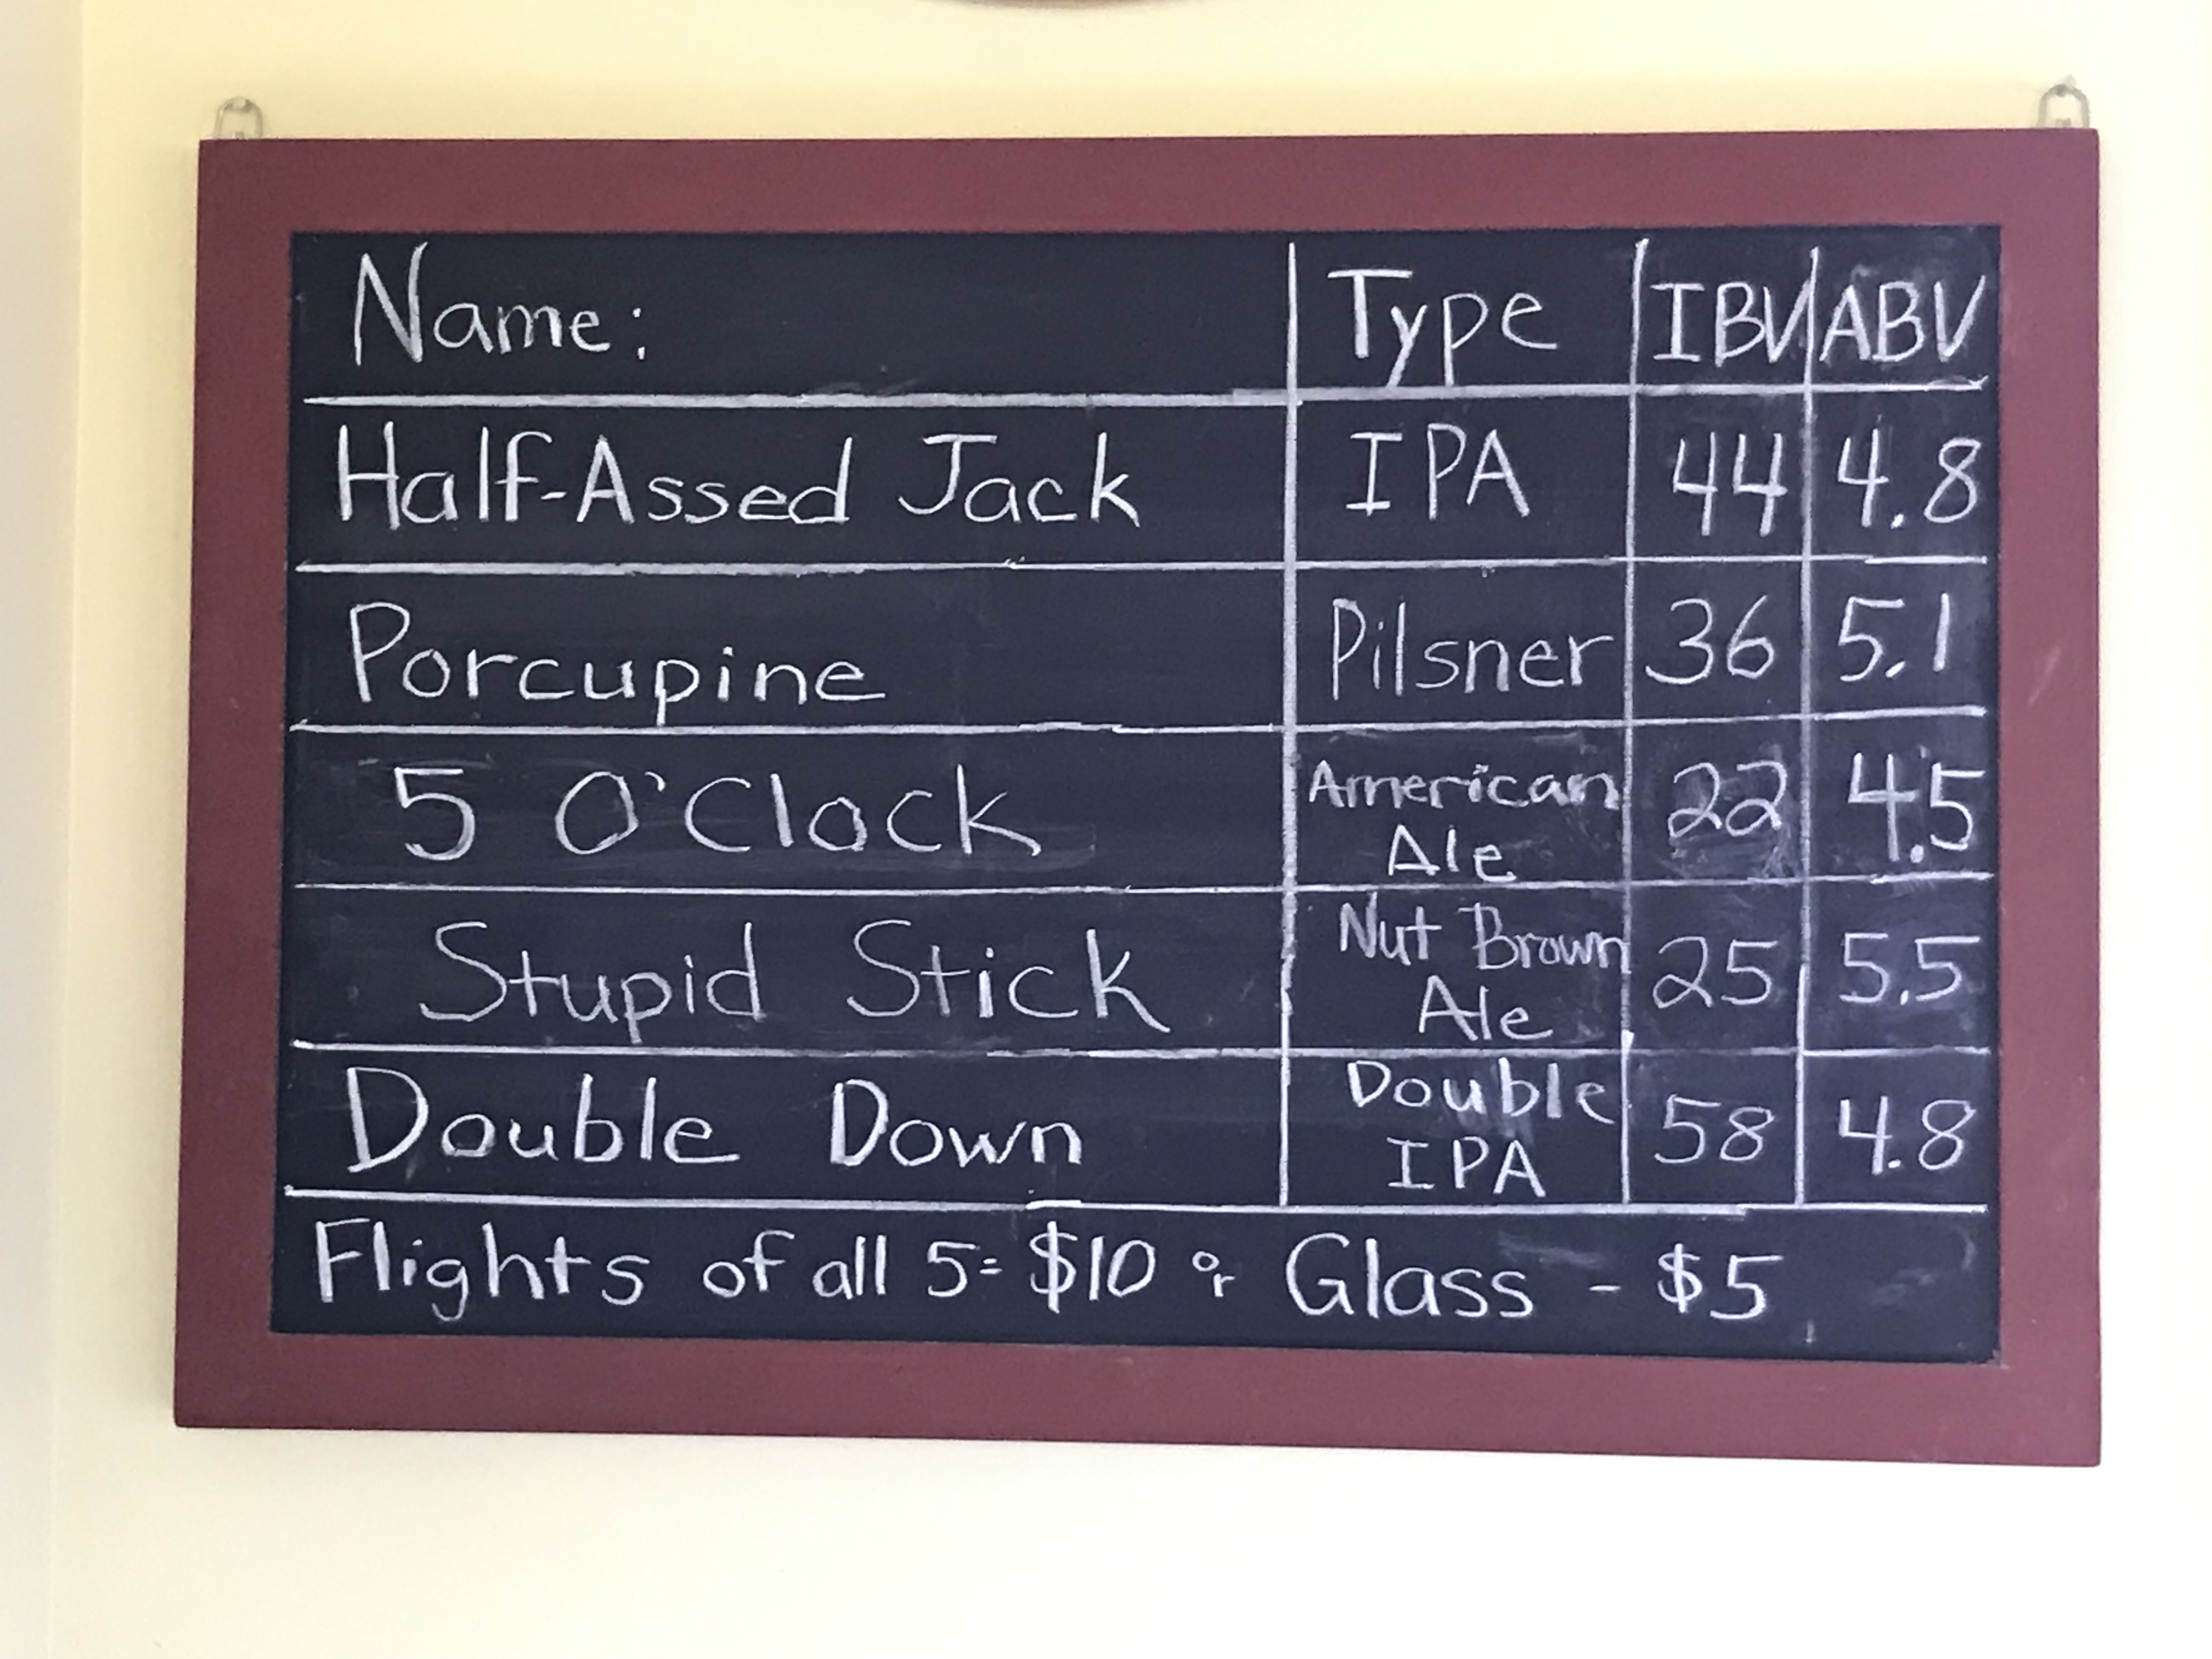 Name: Type IBV ABV
Half-Assed Jack IPA 44 4.8
Porcupine Pilsner 36 5.1
5 O'Clock American Ale 22 4.5
Stupid Stick Nut Brown Ale 25 5.5
Double Down Double IPA 58 4.8
Flights of all 5= $10 or Glass - $5